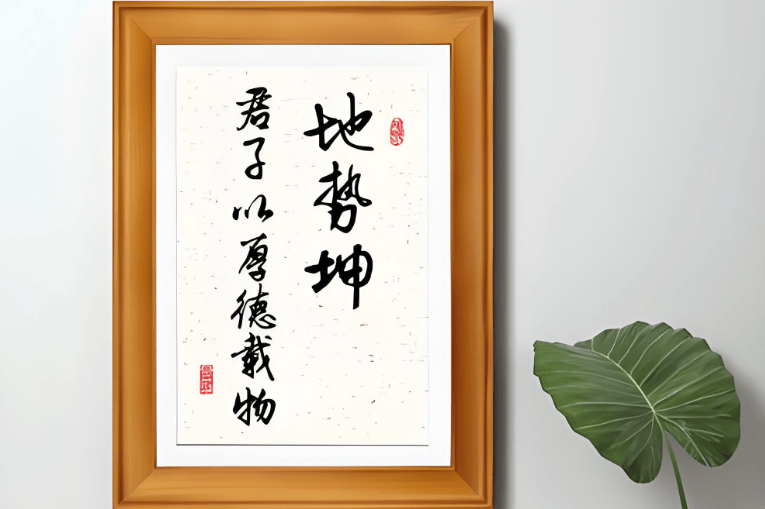 地勢坤
君子以厚德載物